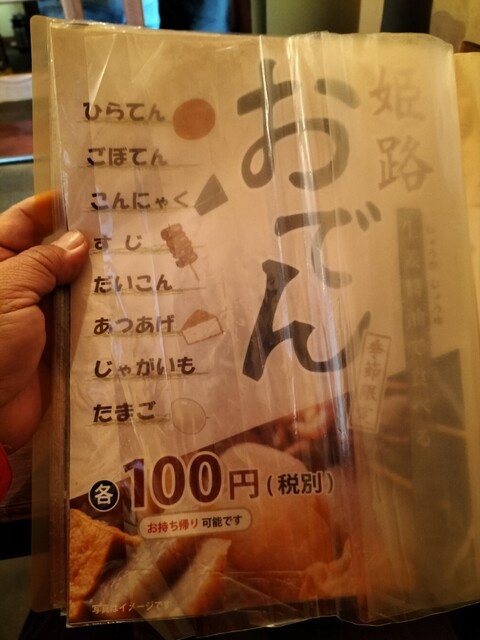 姫路
おでん
生姜醤油で食べる
しょうが じょうゆ
季節限定
ひらてん
ごぼてん
こんにゃく
すじ
だいこん
あつあげ
じゃがいも
たまご
各100円(税別)
お持ち帰り可能です
写真はイメージです